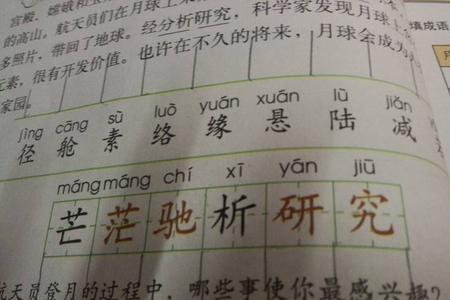 宫殿、嫦娥和
的高山。航天员们在月球上
多照片，带回了地球。经分析研究，科学家发现月球上
元素，很有开发价值。也许在不久的将来，月球会成为
家园。
填成语
jìng cāng sù luò yuán xuán lù jiǎn
径 舱 素 络 缘 悬 陆 减
máng máng chí xī yán jiū
芒 茫 驰 析 研 究
航天员登月的过程中，哪些事使你最感兴趣？